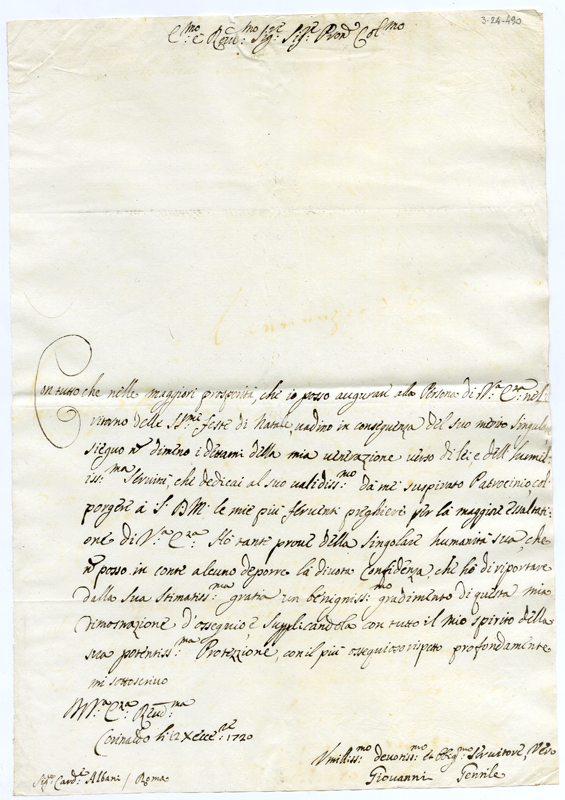 3-24-490
E.mo e R.mo Sig.r Sig.r Pron.e Col.mo
Con tutto che nelle maggiori prosperità, che io posso augurare alla Persona di V.a E.za nel
ritorno delle SS.me feste di Natale, vadino in conseguenza del suo merito singulare
sieguo n.o dimeno i dettami della mia venerazione verso di lei, e dell' humil
iss:ma servitù, che dedicai al suo validiss:mo da me suspirato Patrocinio, col
porgere à S. D.M. le mie più ferventi preghiere per la maggiore esultati
one di V.a E.za Hò tante prove della singolare humanità sua, che
n. posso in conte alcuno deporre la divota confidenza, che hò di riportare
dalla sua stimatiss:ma gratia un benigniss:mo gradimento di questa mia
dimostrazione d'ossequio e supplicandola con tutto il mio spirito della
sua potentiss:ma Protezzione, con il più ossequioso rispetto profondamente
mi sottoscrivo
Di V.a E.za Reud:ma
Corinaldo li 12 Xcem.re 1720
Umilliss:mo devotiss:mo et obblig:mo Servitore Vero
Giovanni Gentile
Sig.r Card.e Albani / Roma